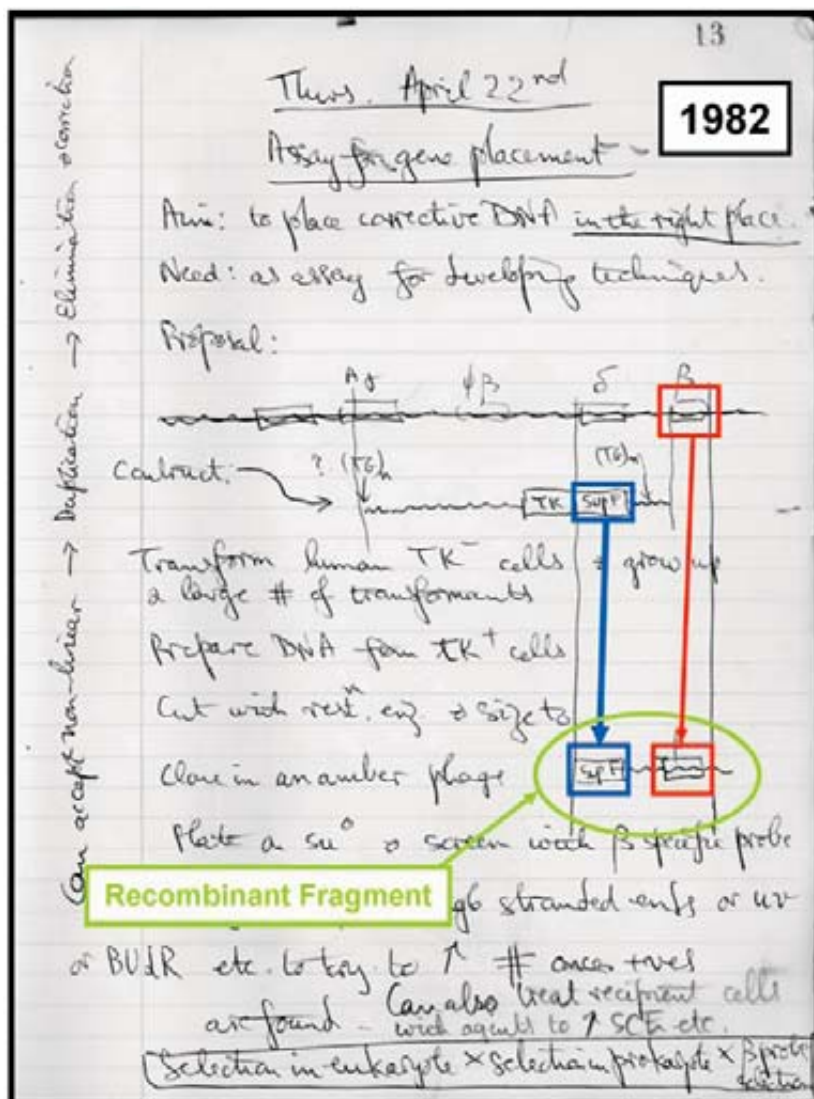 13
Thurs. April 22nd
1982
Assay for gene placement -
Aim: to place corrective DNA in the right place.
Need: as assay for developing techniques.
Proposal:
Aγ ψβ δ β
? (TG)n (TG)n
Construct:
TK SupF
Transform human TK- cells & grow up
a large # of transformants
Prepare DNA from TK+ cells
Cut with restn. enz & size to
Clone in an amber phage
SupF
Plate on su° & screen with β specific probe
Recombinant Fragment
stranded ends or uv
or BUdR etc. to try to ↑ # once +ves
are found - Can also treat recipient cells
with agents to ↑ SCE etc.
Selection in eukaryote × selection in prokaryote × β probe
selection
Can accept non-linear → Duplication → Elimination & correction